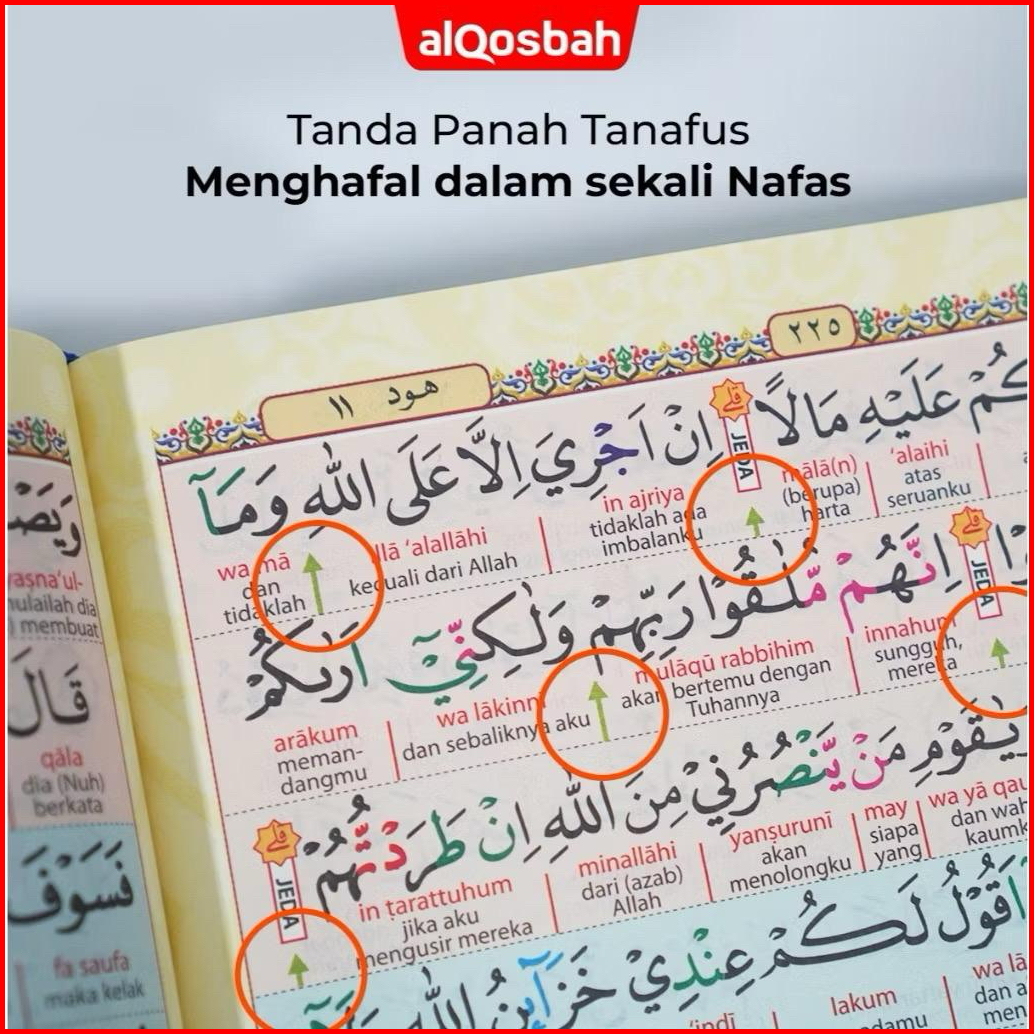 alQosbah
Tanda Panah Tanafus
Menghafal dalam sekali Nafas
٢٢٥
هود ١١
كُمْ عَلَيْهِ مَالًا ۗ اِنْ اَجْرِيَ اِلَّا عَلَى اللّٰهِ وَمَآ
قلے
JEDA
'alaihi
atas
seruanku
mālā(n)
(berupa)
harta
in ajriya
tidaklah ada
imbalanku
illā 'alallāhi
kecuali dari Allah
wa mā
dan
tidaklah
اِنَّهُمْ مُّلٰقُوْا رَبِّهِمْ وَلٰكِنِّيْٓ اَرٰىكُمْ
قلے
JEDA
innahum
sungguh,
mereka
mulāqū rabbihim
akan bertemu dengan
Tuhannya
wa lākinnī
dan sebaliknya aku
arākum
meman-
dangmu
يٰقَوْمِ مَنْ يَّنْصُرُنِيْ مِنَ اللّٰهِ اِنْ طَرَدْتُّهُمْ
قلے
JEDA
wa yā qau
dan wah
kaumk
may
siapa
yang
yanṣurunī
akan
menolongku
minallāhi
dari (azab)
Allah
in ṭarattuhum
jika aku
mengusir mereka
اَقُوْلُ لَكُمْ عِنْدِيْ خَزَاۤىِٕنُ اللّٰهِ
wa lā
dan a
men
lakum
padamu
'indī
وَيَصْ
yaṣna'ul-
mulailah dia
membuat
قَالَ
qāla
dia (Nuh)
berkata
فَسَوْفَ
fa saufa
maka kelak